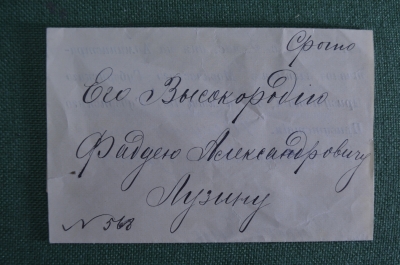 Срочно
Его Высокородію
Фаддею Александровичу
Лузину
N 563